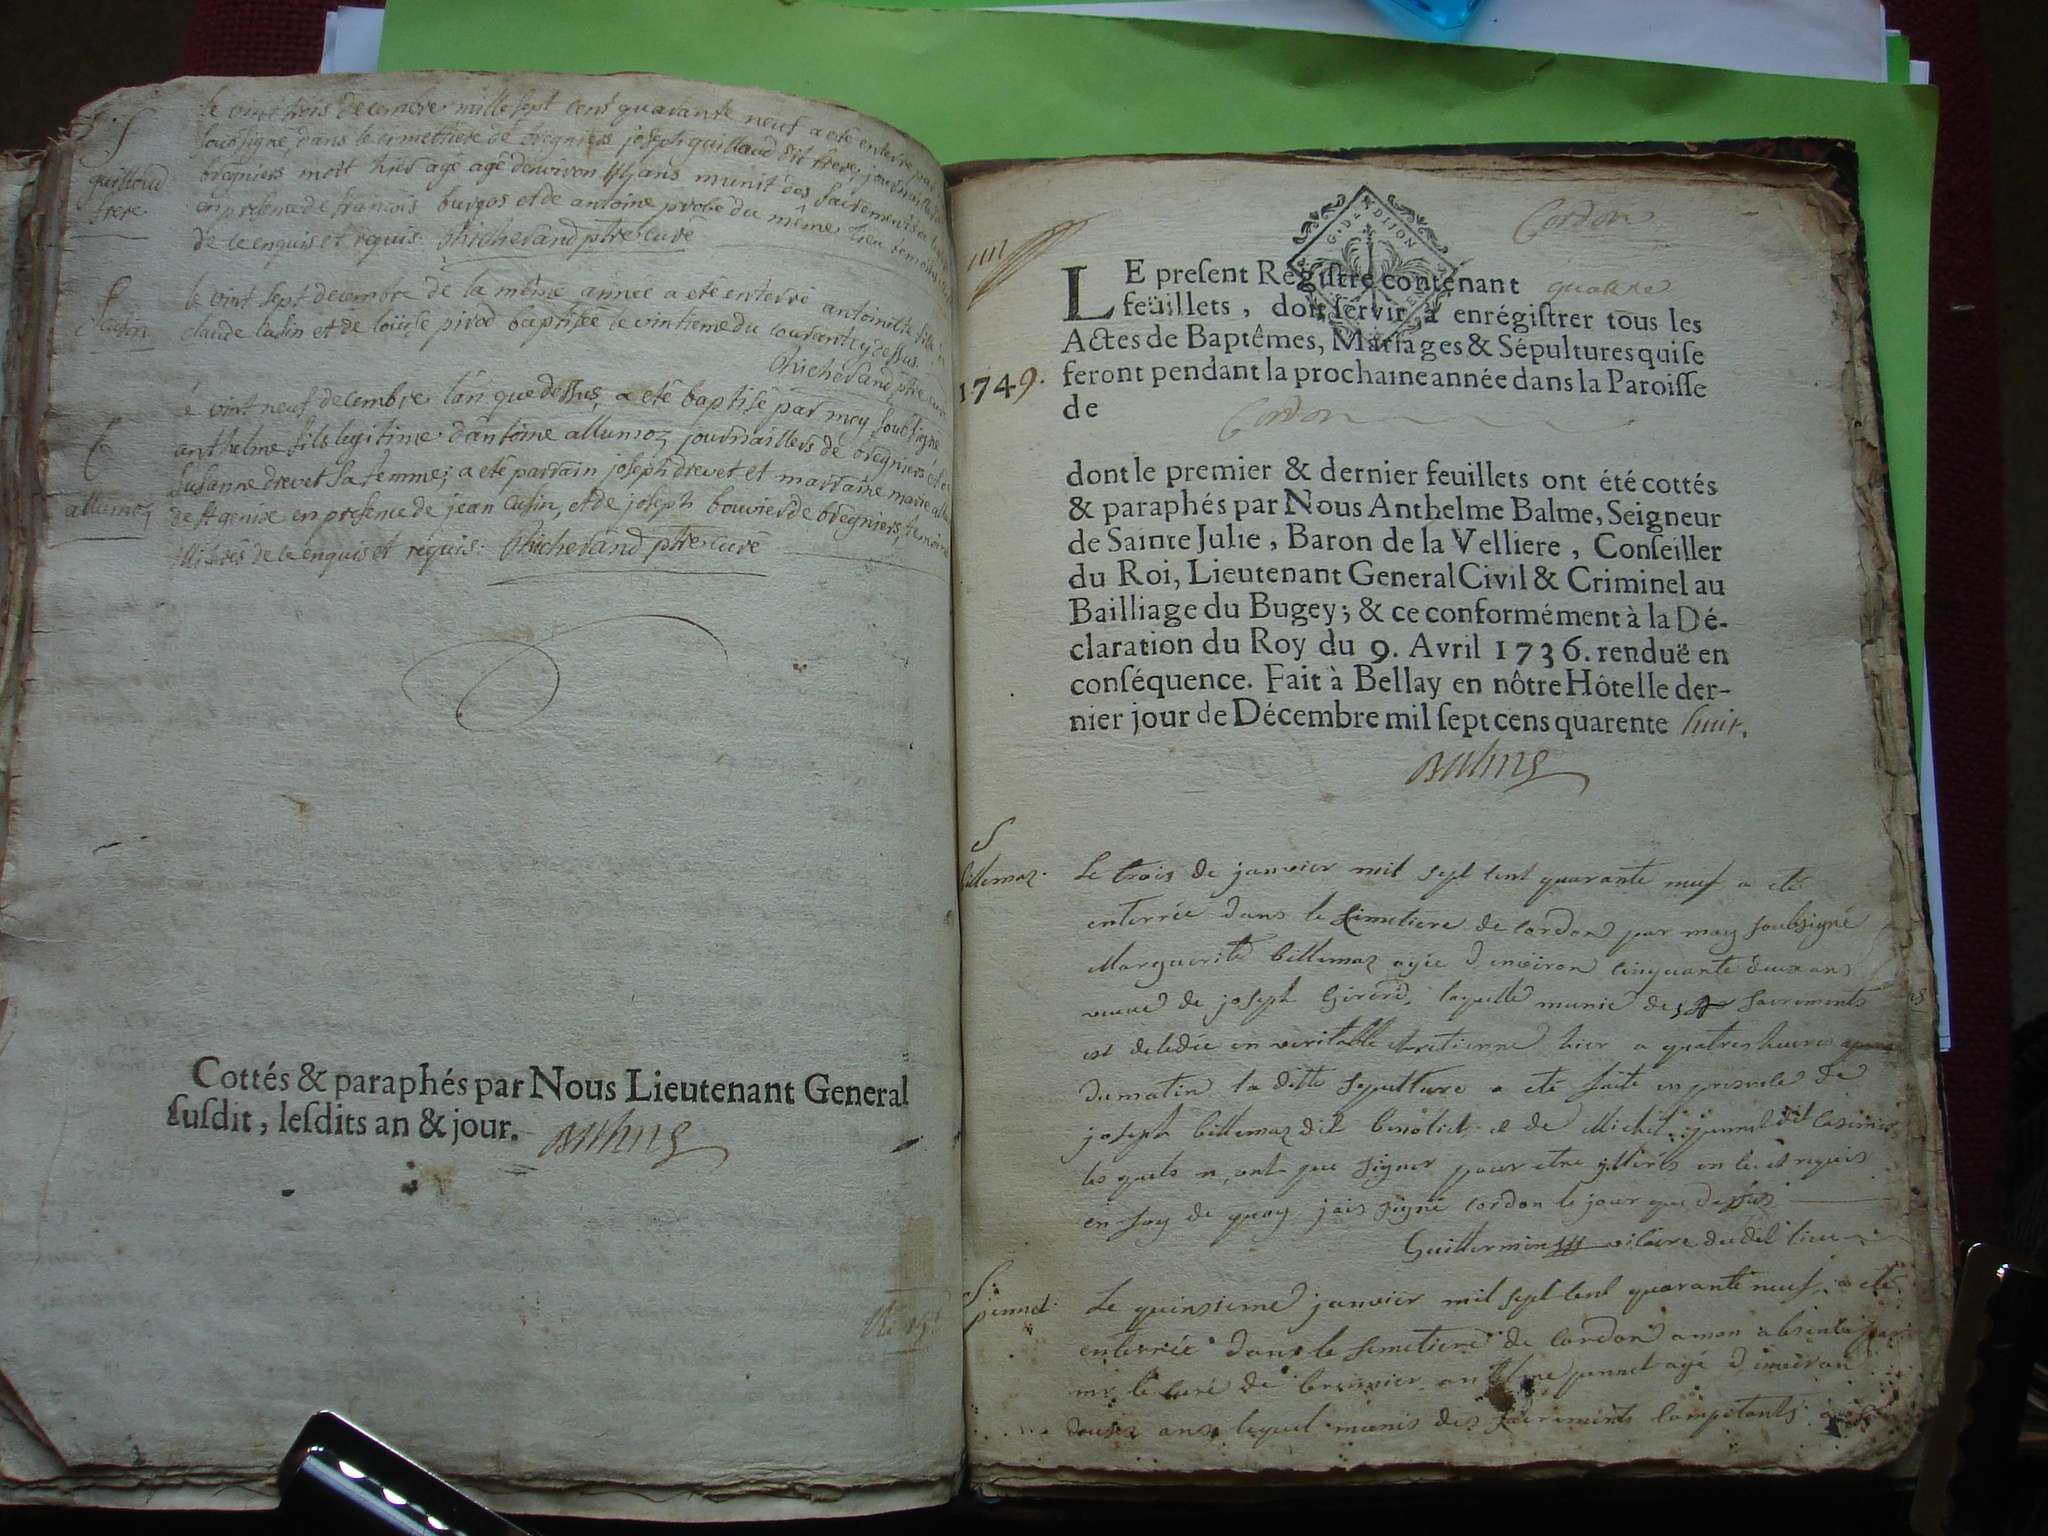 S
guilloud
frere
le vint trois decembre mille sept cent quarante neuf a eté enterré par
soubsigné, dans le cimettiere de bregniers joseph guilloud dit frere, journaillier
bregniers mort hier agé agé denviron ans munit des sacrements
en presence de francois burgos et de antoine probe du même lieu temoins
de ce enquis et requis. Chichevand ptre curé
S
Cusin
le vint sept decembre de la même année a eté enterré antoinette fille
claude Cusin et de loüise pivod baptisée le vintieme du courant cy dessus.
Chichevand, ptre curé
B
allumoz
le vint neuf decembre lan que dessus, a eté baptisé par moy soubsigné
anthelme fils legitime dantoine allumoz journaillers de bregniers et de
Susanne drevet sa femme; a eté parrain joseph drevet et marraine marie
de st genise en presence de jean Cusin, et de joseph bouvier de bregniers, temoins
illitérés de ce enquis et requis: Chichevand ptre curé
Cottés & paraphés par Nous Lieutenant General
susdit, lesdits an & jour. Balme
Cordon
IIII
G. DE DIJON
LE present Régistre contenant quatre
feüillets, doit servir à enrégistrer tous les
Actes de Baptêmes, Mariages & Sépultures qui se
1749. feront pendant la prochaine année dans la Paroisse
de Cordon
dont le premier & dernier feuillets ont été cottés
& paraphés par Nous Anthelme Balme, Seigneur
de Sainte Julie, Baron de la Velliere, Conseiller
du Roi, Lieutenant General Civil & Criminel au
Bailliage du Bugey; & ce conformément à la Dé-
claration du Roy du 9. Avril 1736. renduë en
conséquence. Fait à Bellay en nôtre Hôtel le der-
nier jour de Décembre mil sept cens quarente huit.
Balme
S
billemaz
Le trois de janvier mil sept cent quarante neuf a eté
enterrée dans le cimetiere de cordon par moy soubsigné
Marguerite billemaz agée d'environ cinquante deux ans
veuve de joseph Girerd, laquelle munie de sacrements
est décédée en veritable chretienne hier a quatres heures
du matin la ditte sepulture a eté faite en presence de
joseph billemaz dit benolict et de Michel jannet dit
les quels n'ont peu signer pour etre illitérés en et requis
en foy de quoy jais signé cordon le jour que dessus
Guillermin vicaire dudit lieu
S
jannet
Le quinsieme janvier mil sept cent quarante neuf a eté
enterrée dans le semetiere de cordon a mon absence par
mr le curé de bregnier anthelme jannet agé d'environ
douze ans lequel munis des sacrements competants